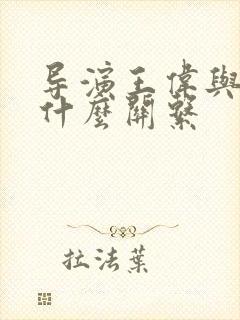 导演王偉與
什麼關繫
拉法葉